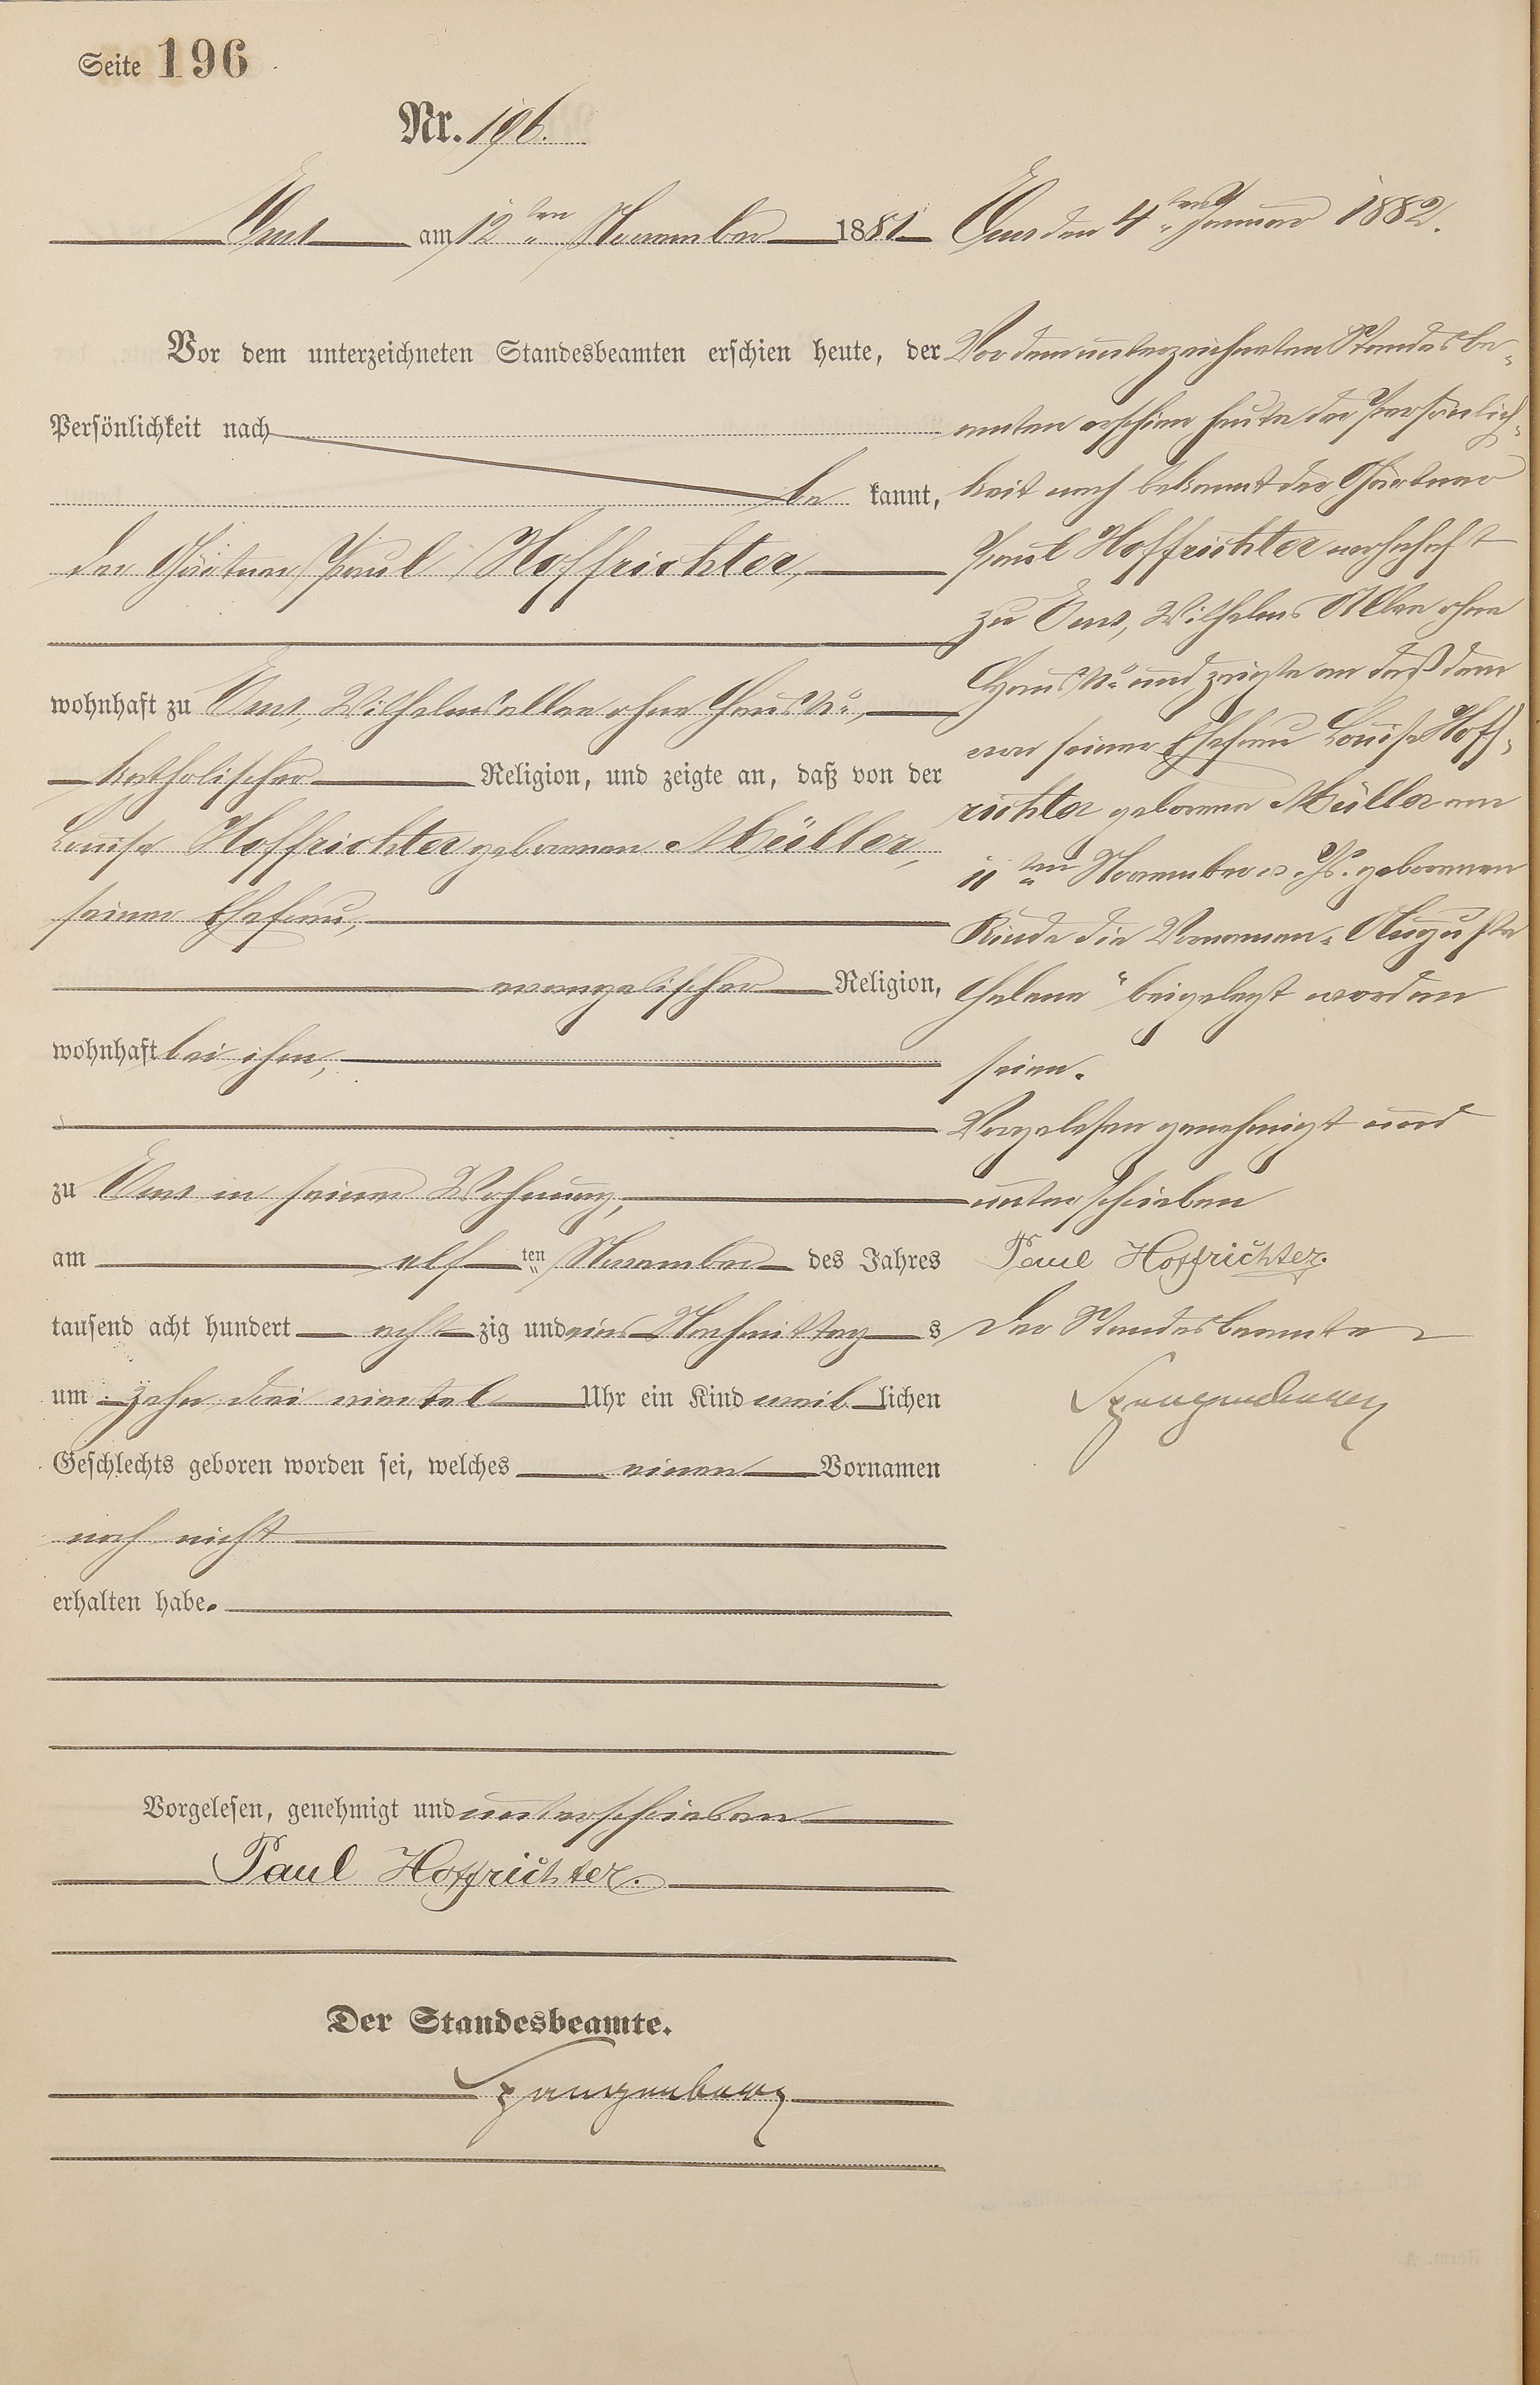 Seite 196
Nr. 196.
Ems am 12ten November 1881
Vor dem unterzeichneten Standesbeamten erschien heute, der
Persönlichkeit nach
be kannt,
der Gärtner Paul Hoffrichter,
wohnhaft zu Ems, Wilhelmsallee ohne Haus No,
katholischer Religion, und zeigte an, daß von der
Louise Hoffrichter geborenen Müller,
seiner Ehefrau,
evangelischer Religion,
wohnhaft bei ihm,
zu Ems in seiner Wohnung,
am elf ten November des Jahres
tausend acht hundert acht zig und eins Nachmittag s
um zehn drei viertel Uhr ein Kind weib lichen
Geschlechts geboren worden sei, welches einen Vornamen
noch nicht
erhalten habe.
Vorgelesen, genehmigt und unterschrieben
Paul Hoffrichter.
Der Standesbeamte.
Spangenberg
Ems den 4ten Januar 1882.
Vor dem unterzeichneten Standesbe-
amten erschien heute der Persönlich-
keit nach bekannt der Gärtner
Paul Hoffrichter wohnhaft
zu Ems, Wilhelms Allee ohne
Haus No und zeigte an daß dem
von seiner Ehefrau Louise Hoff-
richter geborene Müller am
11ten November v. Js. geborenen
Kinde die Vornamen „Auguste
Helene" beigelegt worden
seien.
Vorgelesen genehmigt und
unterschrieben
Paul Hoffrichter.
Der Standesbeamte
Spangenberg